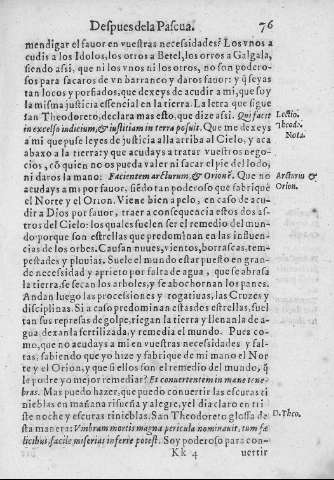 Despues de la Pascua. 76
mendigar el fauor en vuestras necessidades? Los vnos a
cudis a los Idolos, los otros a Betel, los otros a Galgala,
siendo assi, que ni los vnos ni los otros, no son podero-
sos para sacaros de vn barranco y daros fauor: y q̃ seyas
tan locos y porfiados, que dexeys de acudir a mi, que soy
la misma justicia essencial en la tierra. La letra que sigue
san Theodoreto, declara mas esto, que dize assi. Qui facit
Lectio.
in excelso iudicium, & iustitiam in terra posuit. Que me dexeys
Theodo.
a mi que puse leyes de justicia alla arriba al Cielo, y aca
Nota.
abaxo a la tierra: y que acudays a tratar vuestros nego-
cios, cõ quien no os pueda valer ni sacar el pie del lodo,
ni daros la mano: Facientem arcturum, & Orionẽ. Que no
Arcturus &
acudays a mi por fauor, siẽdo tan poderoso que fabriquè
Orion.
el Norte y el Orion. Viene bien apelo, en caso de acu-
dir a Dios por fauor, traer a consequencia estos dos as-
tros del Cielo: los quales suelen ser el remedio del mun-
do: porque son estrellas que predominan en las influen-
cias de los orbes. Causan nieues, vientos, borrascas, tem-
pestades y pluuias. Suele el mundo estar puesto en gran-
de necessidad y aprieto por falta de agua, que se abrasa
la tierra, se secan los arboles, y se abochornan los panes.
Andan luego las processiones y rogatiuas, las Cruzes y
disciplinas. Si a caso predominan estas dos estrellas, suel
tan sus represas de golpe, riegan la tierra y llenanla de a-
gua, dexanla fertilizada, y remedia el mundo. Pues co-
mo, que no acudays a mi en vuestras necessidades y fal-
tas, sabiendo que yo hize y fabrique de mi mano el Nor
te y el Orion, y que si ellos son el remedio del mundo, q̃
le podre yo mejor remediar? Et conuertentem in mane tene-
bras. Mas puedo hazer, que puedo conuertir las escuras ti
nieblas en mañana risueña y alegre, y el dia claro en tri
ste noche y escuras tinieblas. San Theodoreto glossa de-
D. Theo.
sta manera: Vmbram mortis magna pericula nominauit, tum fæ
licibus, facile miserias inferre potest. Soy poderoso para con-
Kk 4 uertir